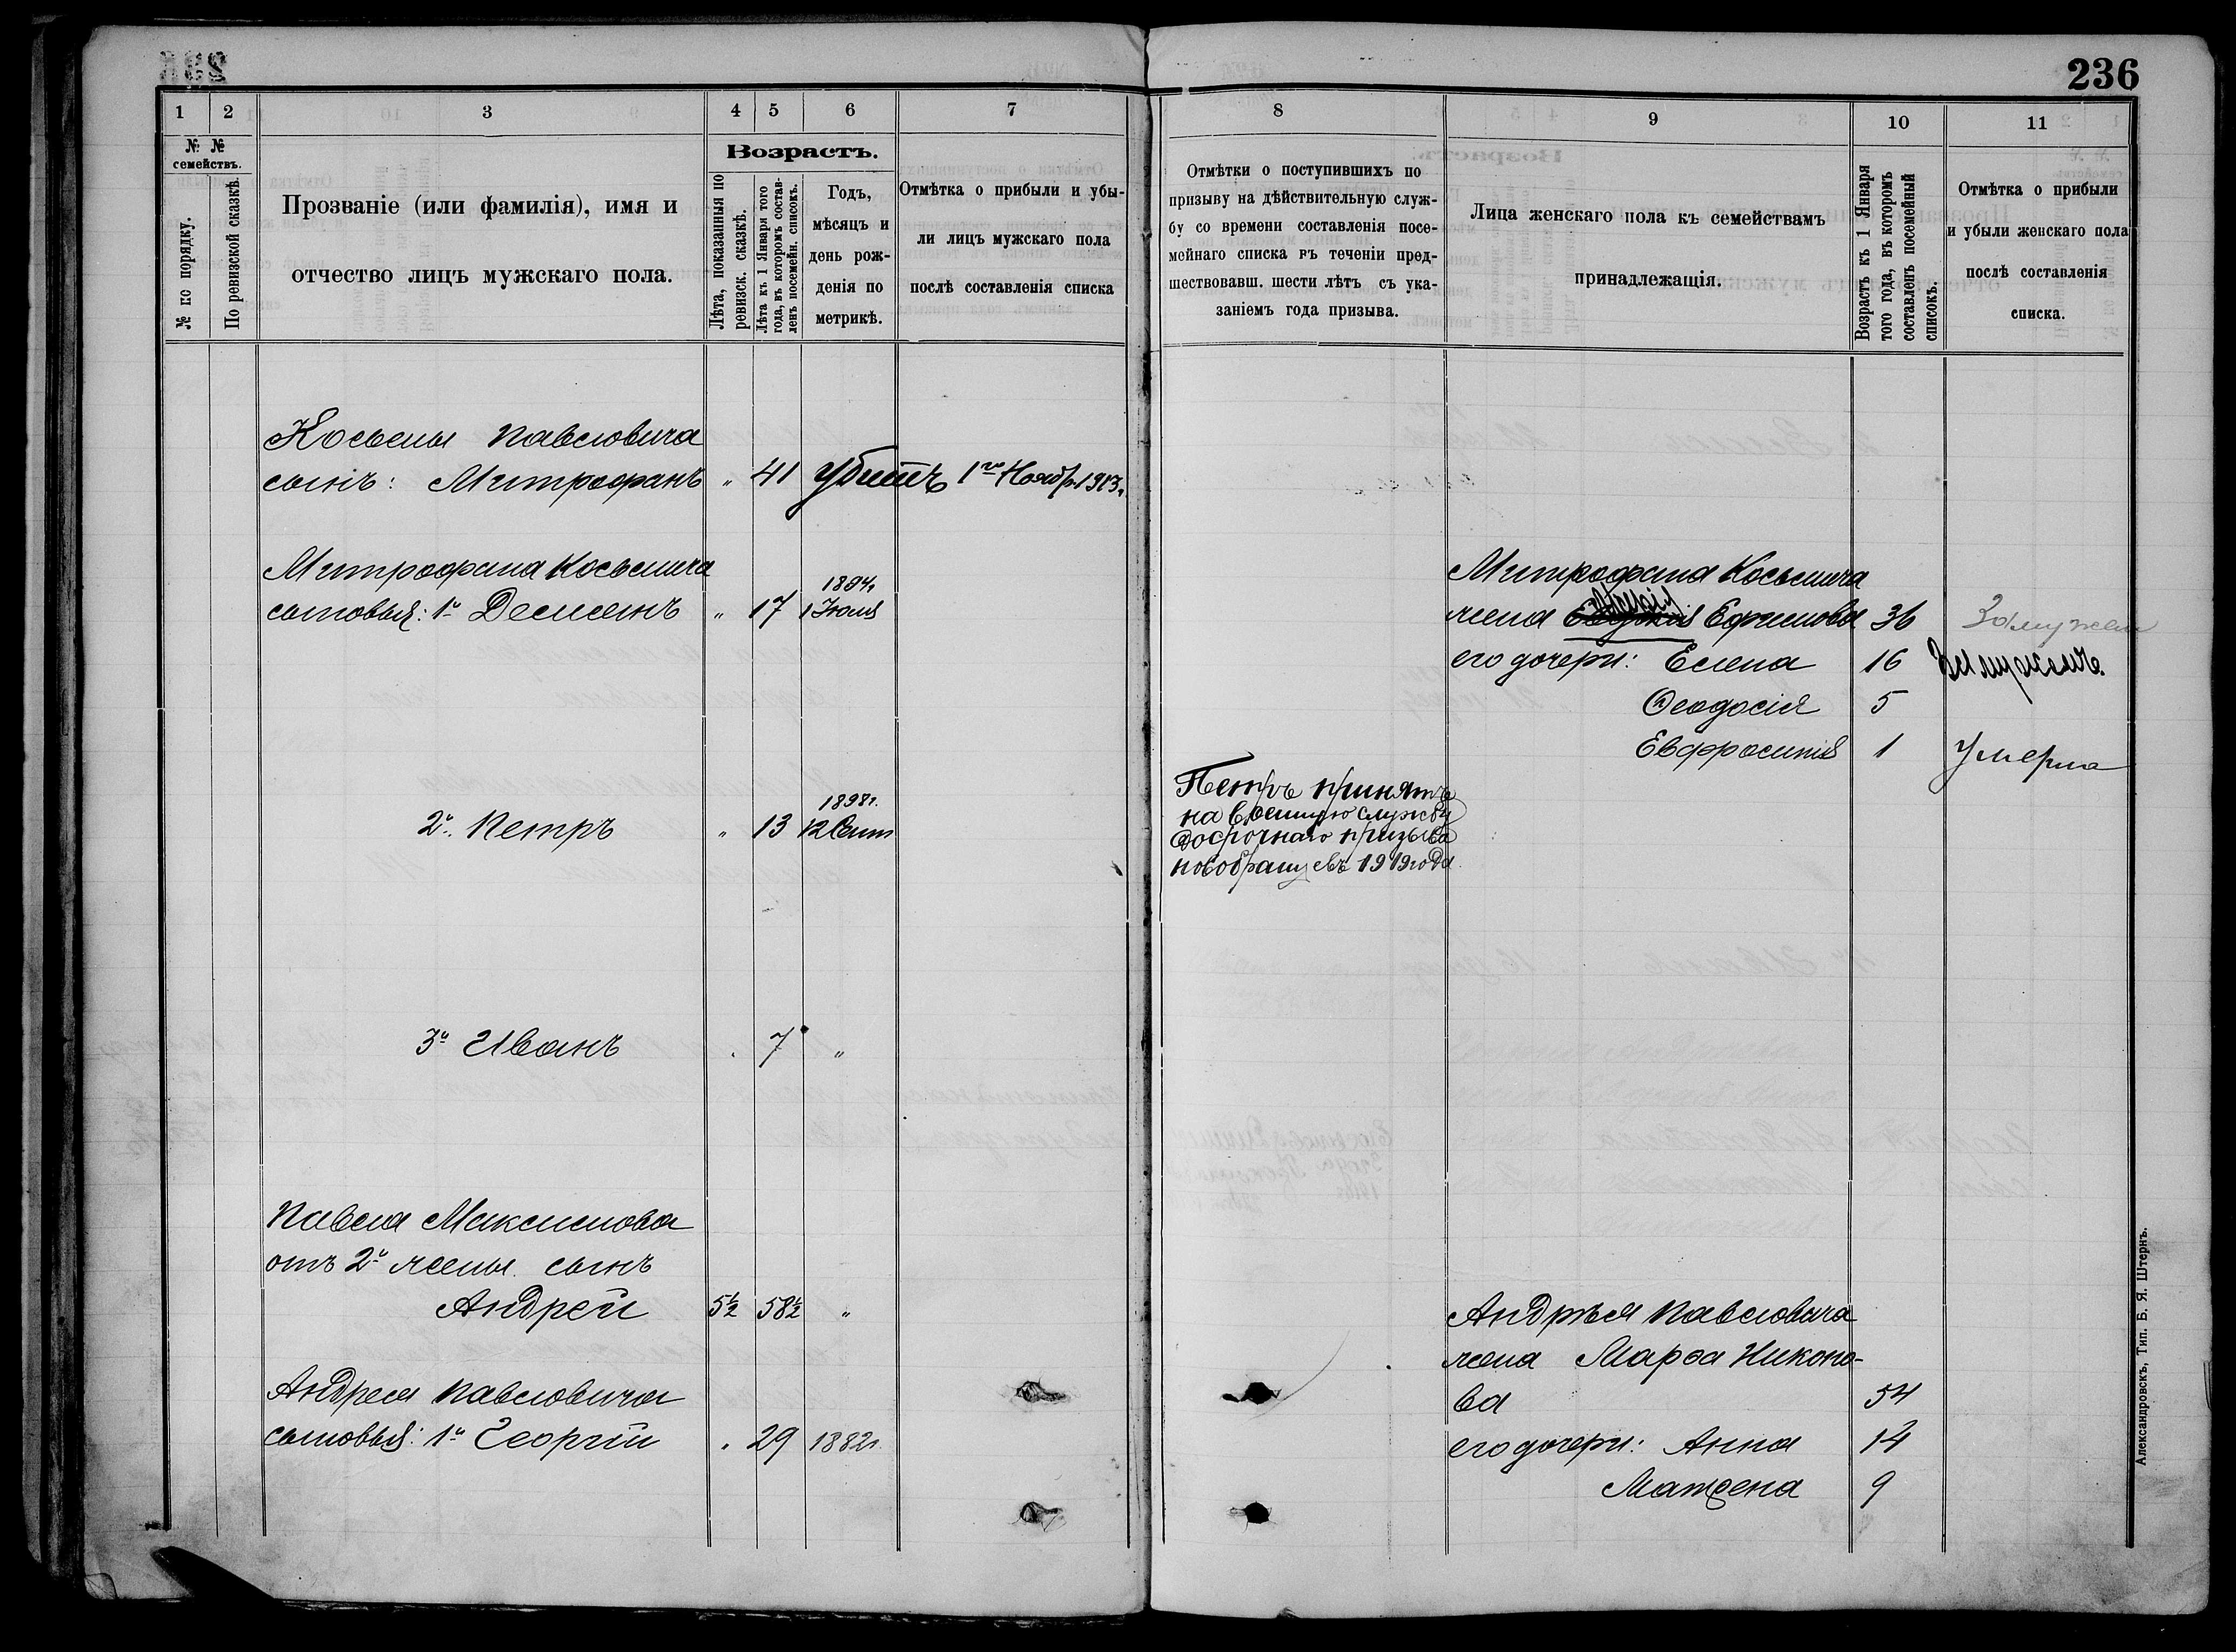 236
1 2 3 4 5 6 7
№ № семействъ.
№ по порядку.
По ревизской сказкѣ.
Прозваніе (или фамилія), имя и
отчество лицъ мужскаго пола.
Возрастъ.
Лѣта, показанныя по
ревизск. сказкѣ.
Лѣта къ 1 Января того
года, въ которомъ состав-
ленъ посемейн. списокъ.
Годъ,
мѣсяцъ и
день рож-
денія по
метрикѣ.
Отмѣтка о прибыли и убы-
ли лицъ мужскаго пола
послѣ составленія списка
Косьмы Павловича
сынъ: Митрофанъ " 41 Убитъ 1го Ноябр. 1913г.
Митрофана Косьмича
1894г.
сыновья: 1й Демьянъ " 17 1 Іюля
1898г.
2й Петръ " 13 12 Сент
3й Иванъ " 7 "
Павла Максимова
отъ 2й жены сынъ
Андрей 5½ 58½ "
Андрея Павловича
сыновья: 1й Георгій " 29 1882г.
8 9 10 11
Отмѣтки о поступившихъ по
призыву на дѣйствительную служ-
бу со времени составленія посе-
мейнаго списка въ теченіи пред-
шествовавш. шести лѣтъ съ ука-
заніемъ года призыва.
Лица женскаго пола къ семействамъ
принадлежащія.
Возрастъ къ 1 Января
того года, въ которомъ
составленъ посемейный
списокъ.
Отмѣтка о прибыли
и убыли женскаго пола
послѣ составленія
списка.
Митрофана Косьмича
жена Ефимова 36 Замужем
его дочери: Елена 16 Замужемъ
Ѳеодосія 5
Евфросинія 1 Умерла
Петръ принятъ
на военную службу
досрочнаго призыва
новобранцевъ 1919 года
Андрѣя Павловича
жена Марѳа Никоно-
ва 54
его дочери: Анна 14
Матрена 9
Александровскъ, Тип. Б. Я. Штернъ.